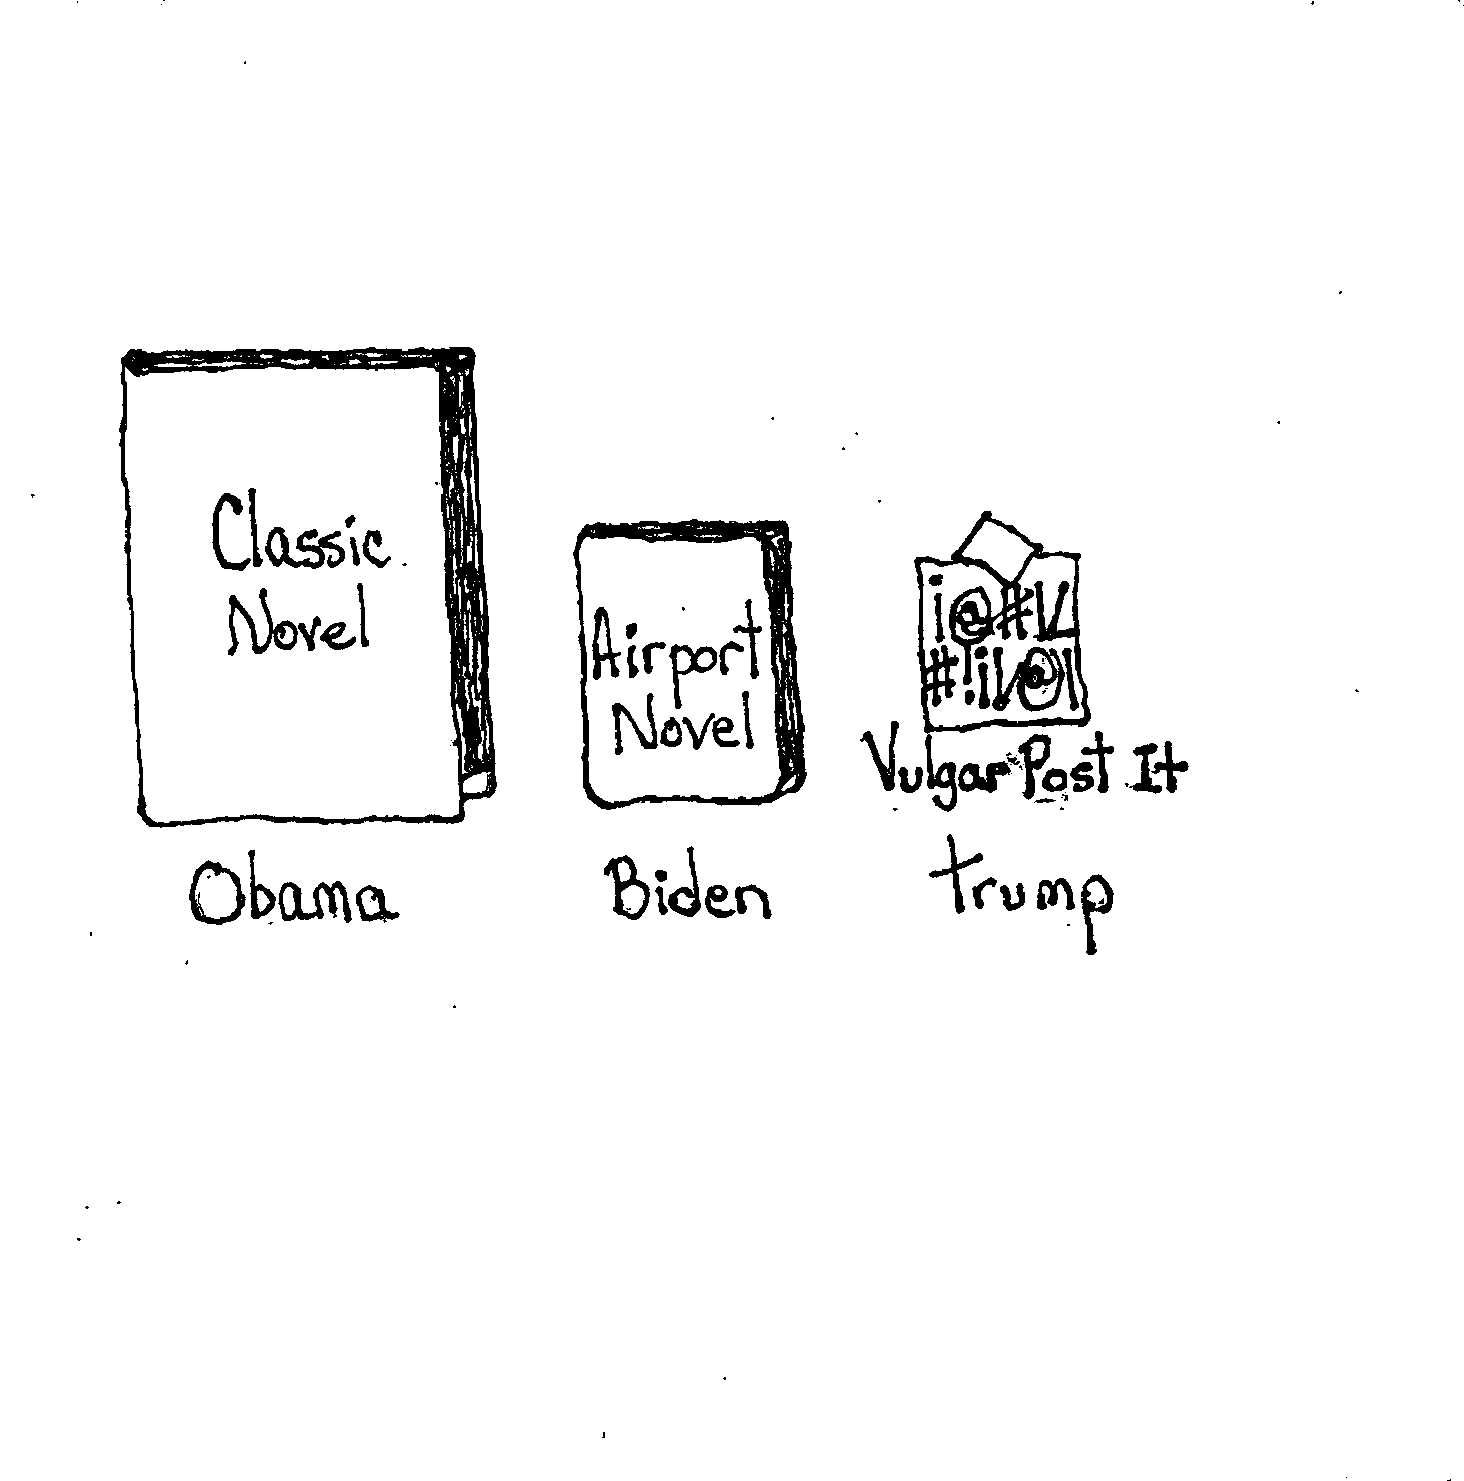 Classic
Novel
Obama
Airport
Novel
Biden
¡@#!/
#!¡!/@!
Vulgar Post It
Trump